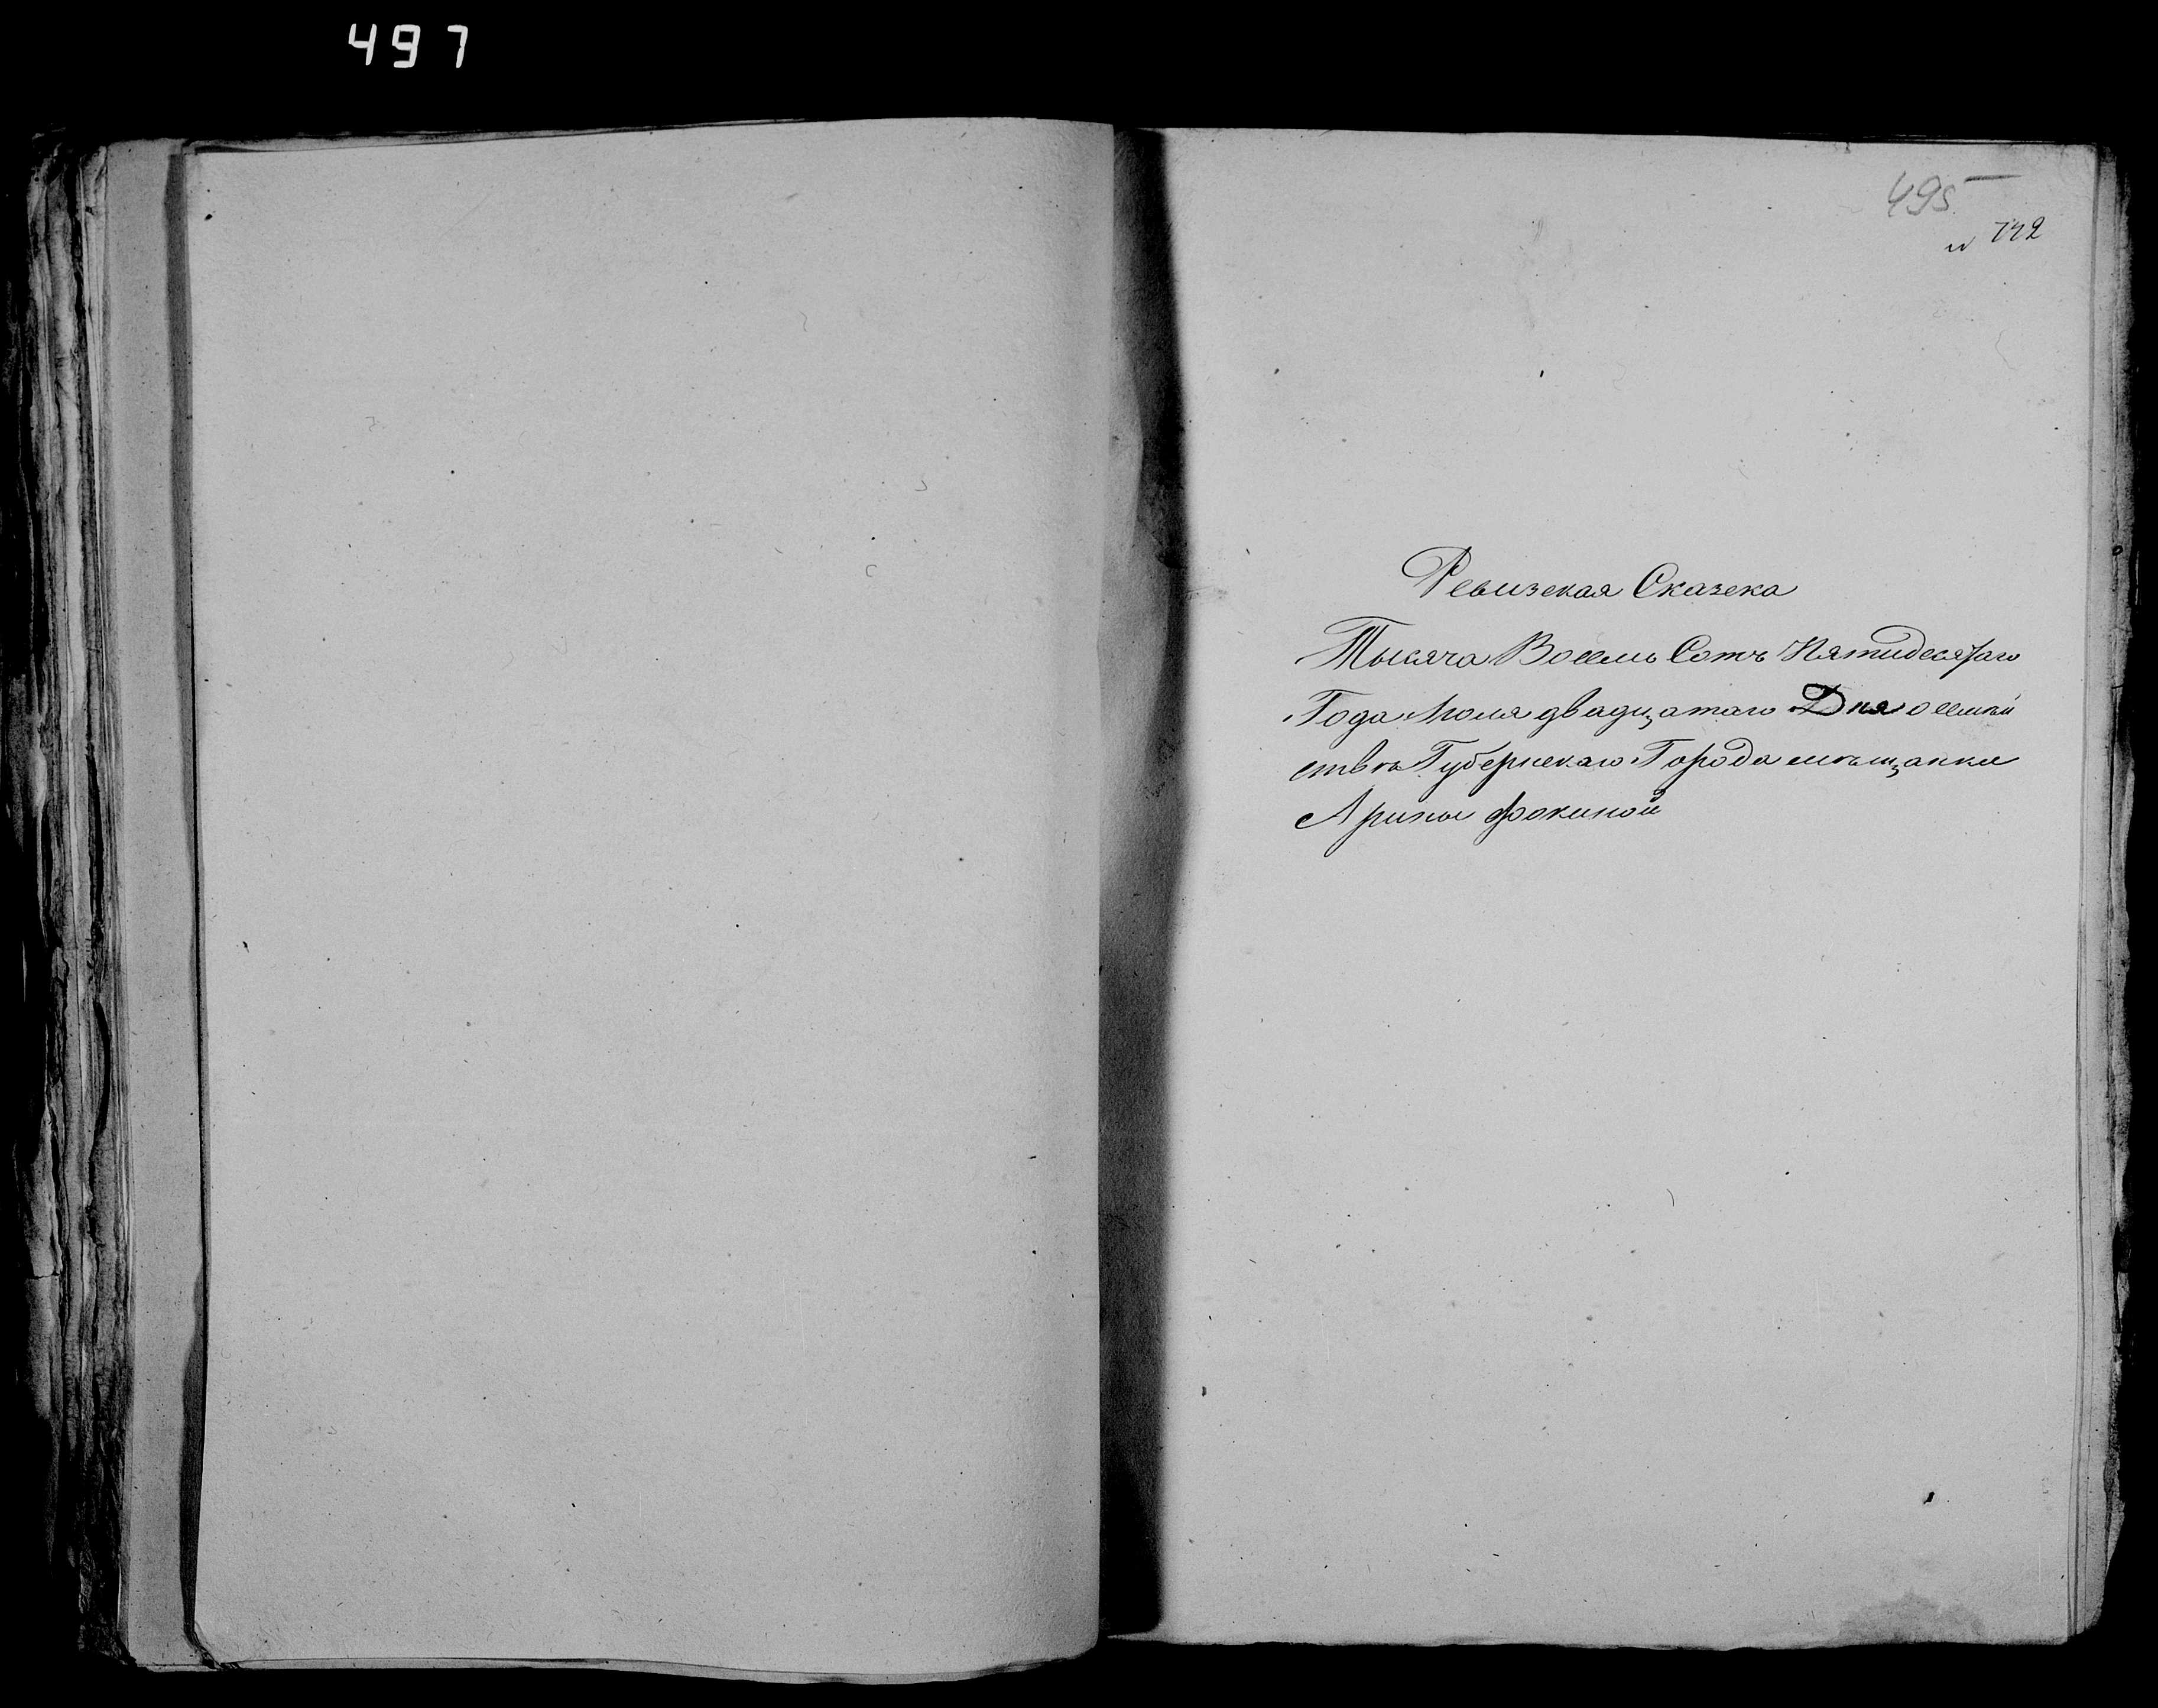 497
495
№ 742
Ревизская Сказска
Тысяча Восемь Сотъ Пятидесятаго
Года Июля двадцатаго Дня о семѣй
ствѣ Губернскаго Города мѣщанки
Арины Фокиной